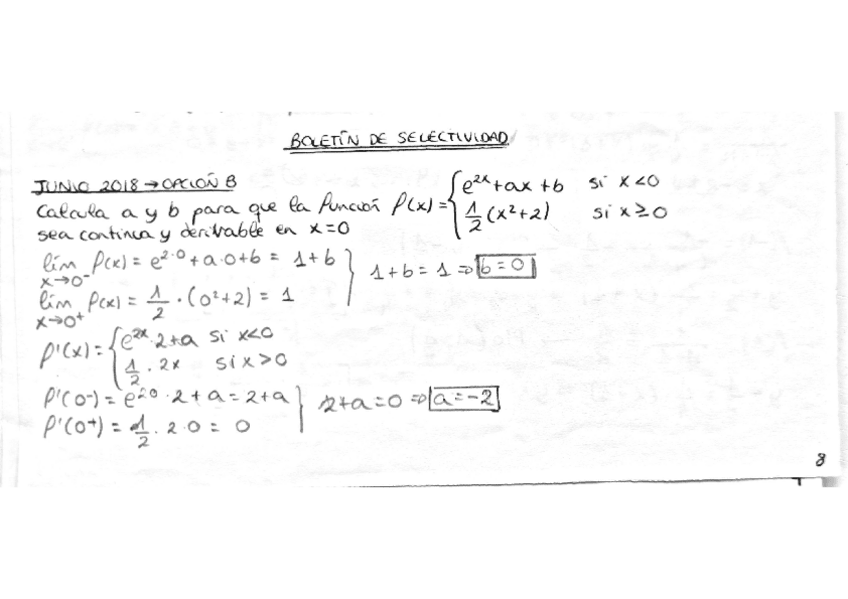 BOLETÍN DE SELECTIVIDAD
JUNIO 2018 → OPCIÓN B
Calcula a y b para que la función f(x) = { e^2x + ax + b si x < 0
1/2 (x² + 2) si x ≥ 0
sea continua y derivable en x = 0
lím x→0⁻ f(x) = e^2·0 + a·0 + b = 1 + b
lím x→0⁺ f(x) = 1/2 · (0² + 2) = 1
} 1 + b = 1 ⇒ b = 0
f'(x) = { e^2x · 2 + a si x < 0
1/2 · 2x si x > 0
f'(0⁻) = e^2·0 · 2 + a = 2 + a
f'(0⁺) = 1/2 · 2·0 = 0
} 2 + a = 0 ⇒ a = -2
8